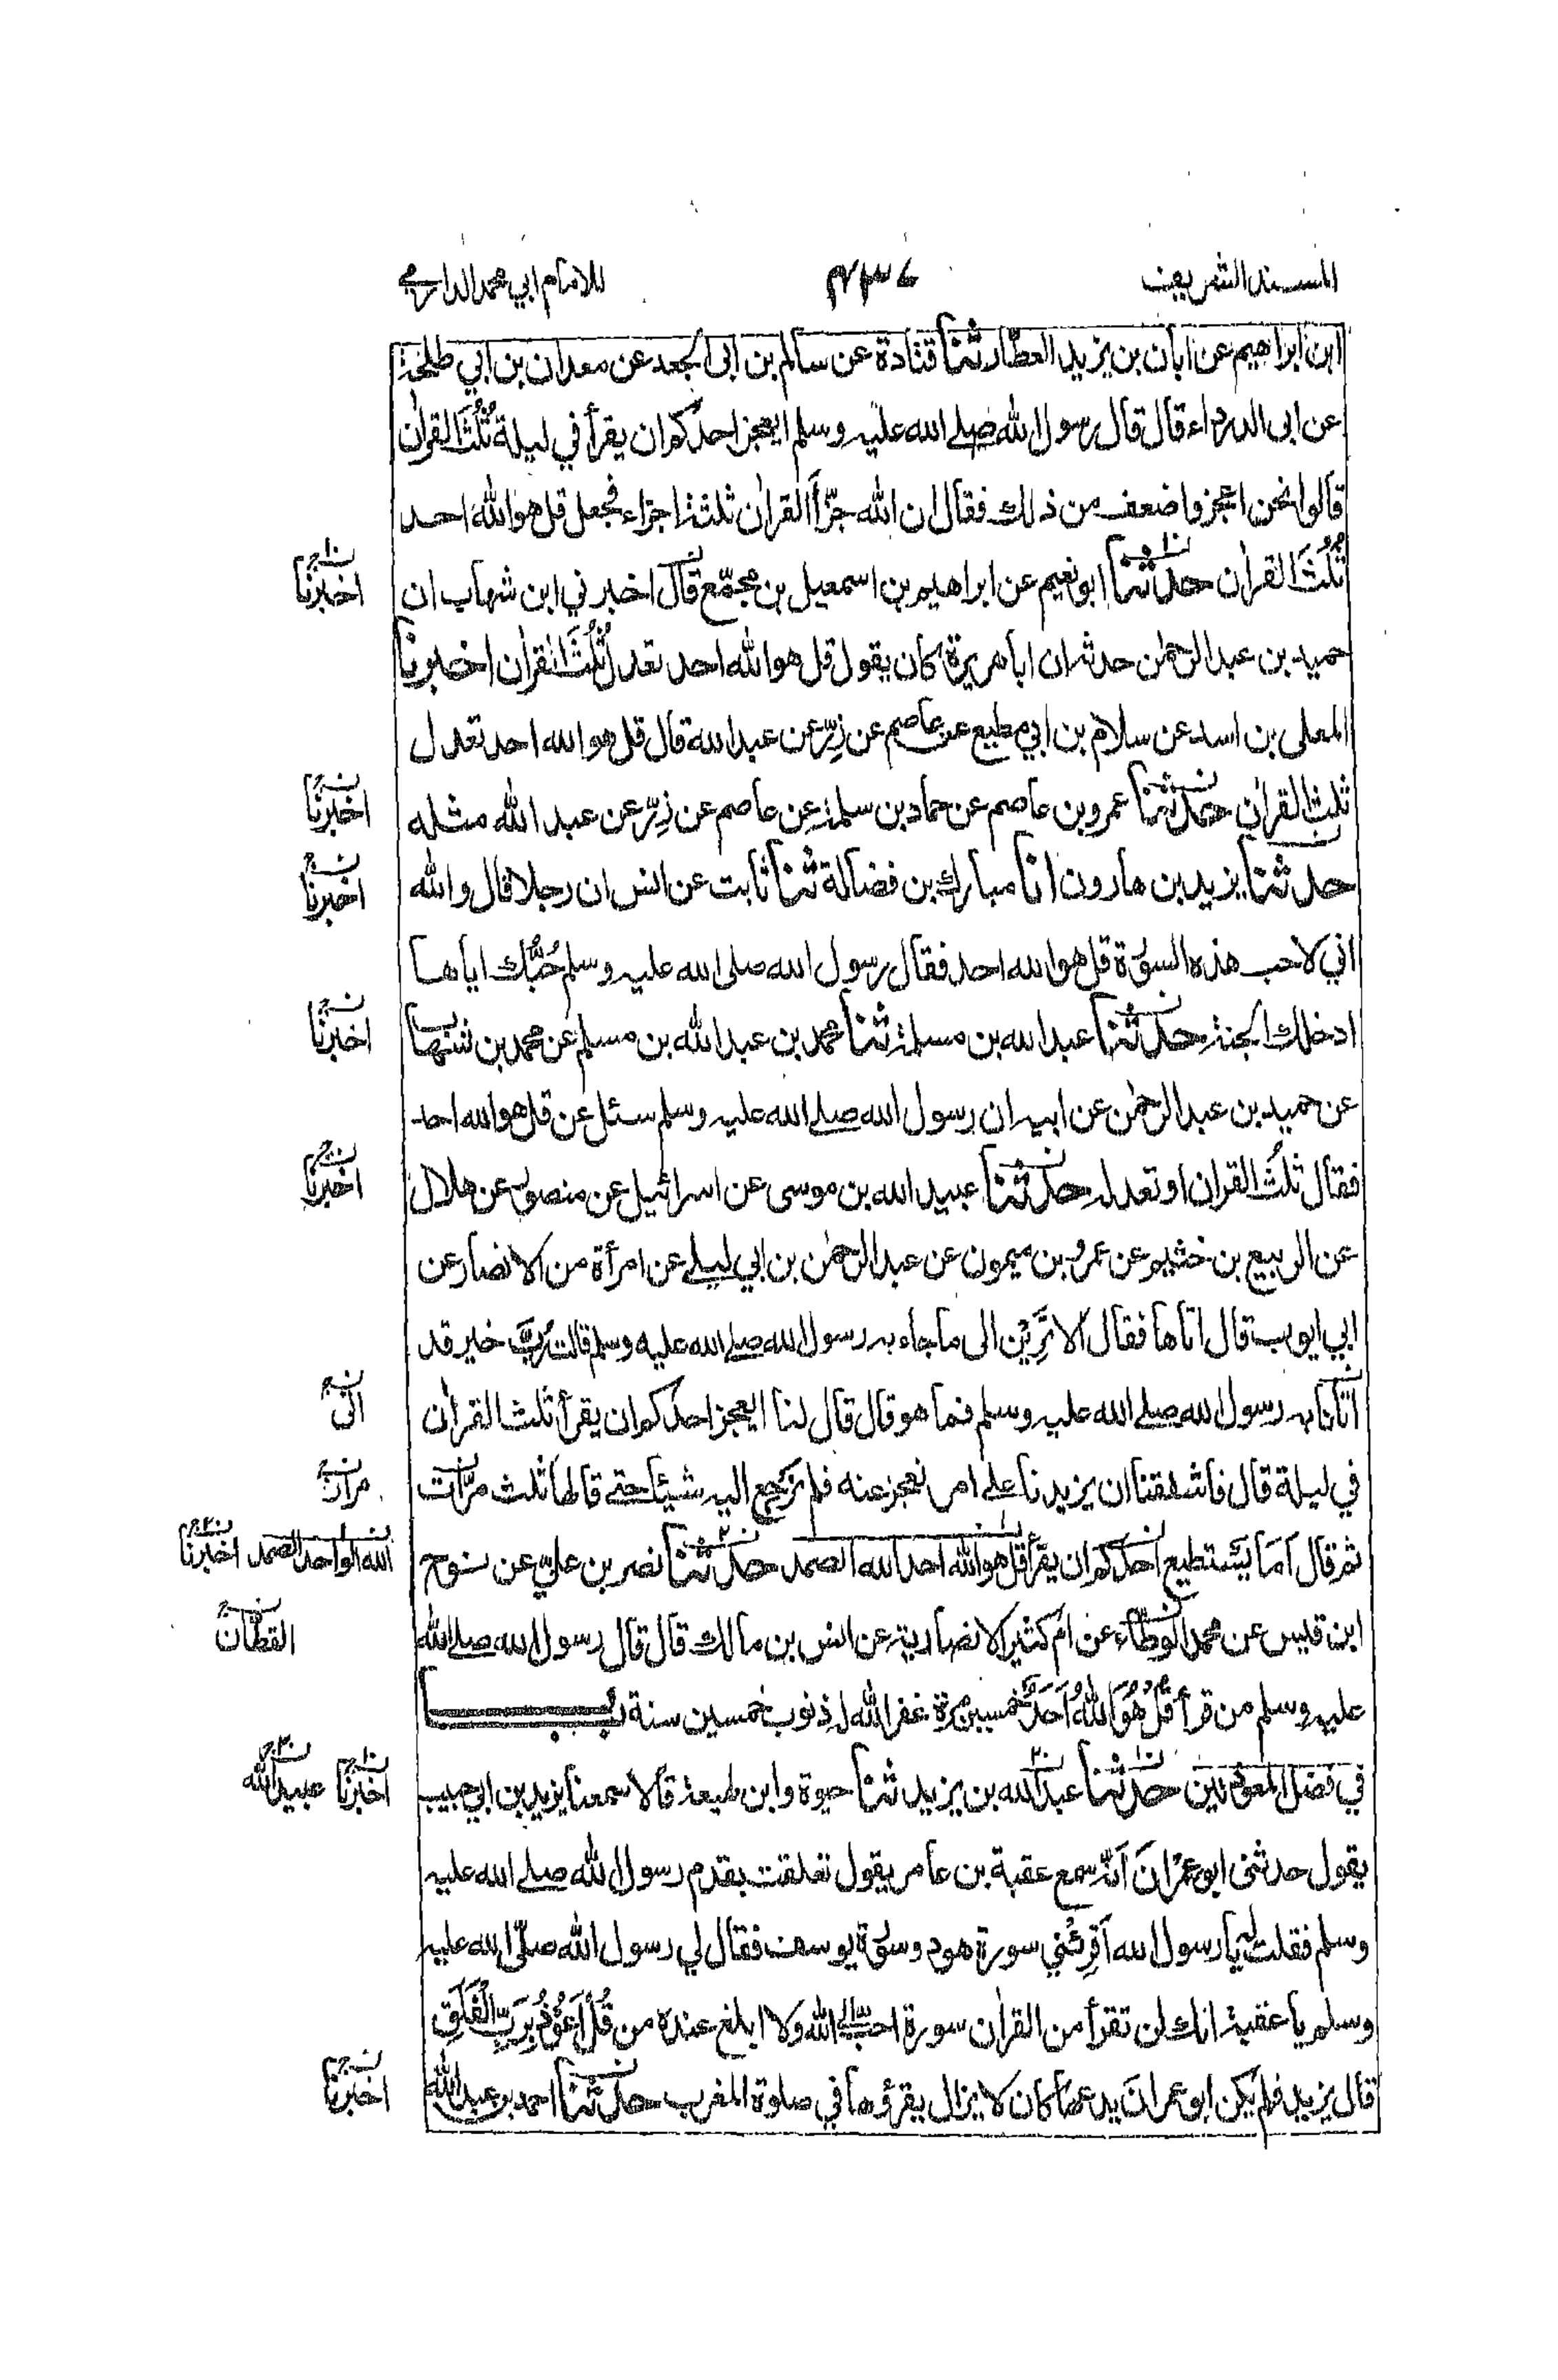 المسند الشريف ٤٣٧ للامام ابي محمد الدارمي
ابن ابراهيم عن ابان بن يزيد العطار ثنا قتادة عن سالم بن ابى الجعد عن معدان بن ابي طلحة
عن ابى الدرداء قال قال رسول الله صلے الله عليه وسلم ايعجز احدكم ان يقرأ في ليلة ثُلُثَ القران
قالوا نحن اعجز واضعف من ذلك فقال ان الله جزّأ القران ثلثة اجزاء فجعل قل هو الله احد
ثُلُثَ القران حدثنا ابو نعيم عن ابراهيم بن اسمعيل بن مجمّع قال اخبرني ابن شهاب ان
اخبرنا
حميد بن عبد الرحمٰن حدثه ان ابا هريرة كان يقول قل هو الله احد تعدل ثُلُثَ القران اخبرنا
المعلى بن اسد عن سلام بن ابي مطيع عن عاصم عن زِرّ عن عبد الله قال قل هو الله احد تعدل
ثلث القران حدثنا عمرو بن عاصم عن حماد بن سلمة عن عاصم عن زِرّ عن عبد الله مثله
اخبرنا
حدثنا يزيد بن هارون انا مبارك بن فضالة ثنا ثابت عن انس ان رجلا قال والله
اخبرنا
اني لاحب هذه السورة قل هو الله احد فقال رسول الله صلى الله عليه وسلم حُبُّك اياها
ادخلك الجنة حدثنا عبد الله بن مسلمة ثنا محمد بن عبد الله بن مسلم عن محمد بن شهاب
اخبرنا
عن حميد بن عبد الرحمٰن عن ابيه ان رسول الله صلے الله عليه وسلم سئل عن قل هو الله احد
فقال ثلُث القران او تعدله حدثنا عبيد الله بن موسى عن اسرائيل عن منصور عن هلال
اخبرنا
عن الربيع بن خثيم عن عمرو بن ميمون عن عبد الرحمٰن بن ابي ليلے عن امرأة من الانصار عن
ابي ايوب قال اتاها فقال الا تَرَيْن الى ما جاء به رسول الله صلے الله عليه وسلم قالت رُبَّ خير قد
اتانا به رسول الله صلے الله عليه وسلم فما هو قال قال لنا ايعجز احدكم ان يقرأ ثلث القران
في ليلة قال فاشفقنا ان يزيدنا علے امر نعجز عنه فلم نرجع اليه شيئا حتے قالها ثلث مرّات
مرار
ثم قال اما يستطيع احدكم ان يقرأ قل هو الله احد الله الصمد حدثنا نصر بن عليّ عن نوح
الله الواحد الصمد اخبرنا
ابن قيس عن محمد الوطّاء عن ام كثير الانصارية عن انس بن مالك قال قال رسول الله صلے الله
القطّان
عليه وسلم من قرأ قُلْ هُوَ اللهُ اَحَدٌ خمسين مرة غفر الله له ذنوب خمسين سنة باب
في فضل المعوذتين حدثنا عبد الله بن يزيد ثنا حيوة وابن لهيعة قالا سمعنا يزيد بن ابي حبيب
اخبرنا عبيد الله
يقول حدثنى ابو عمران انه سمع عقبة بن عامر يقول تعلقت بقدم رسول الله صلے الله عليه
وسلم فقلت له يا رسول الله اَقرِئْني سورة هود وسورة يوسف فقال لي رسول الله صلّى الله عليه
وسلم يا عقبة انك لن تقرأ من القران سورة احبّ الى الله ولا ابلغ عنده من قُلْ اَعُوْذُ بِرَبِّ الْفَلَقِ
قال يزيد فلم يكن ابو عمران يدعها كان لا يزال يقرؤها في صلوة المغرب حدثنا احمد بن عبد الله
اخبرنا